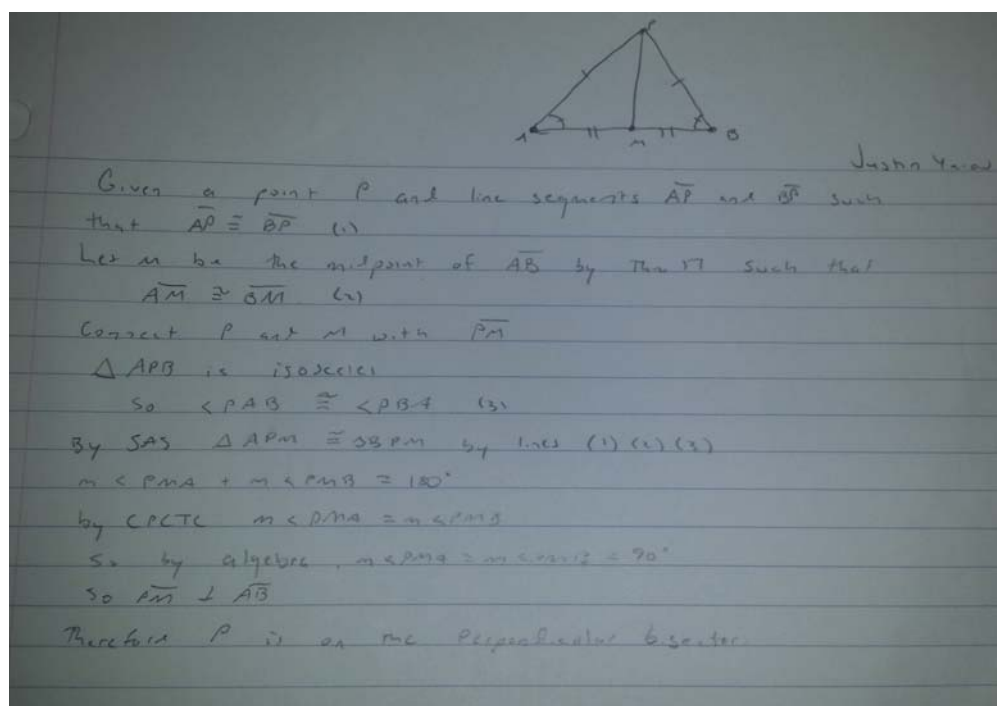 P
A M B
Justin
Given a point P and line segments AP and BP such
that AP ≅ BP (1)
Let M be the midpoint of AB by Thm 17 such that
AM ≅ BM (2)
Connect P and M with PM
△ APB is isosceles
so <PAB ≅ <PBA (3)
By SAS △ APM ≅ △BPM by lines (1) (2) (3)
m < PMA + m < PMB = 180°
by CPCTC m < PMA = m < PMB
So by algebra, m < PMA = m < PMB = 90°
so PM ⊥ AB
Therefore P is on the perpendicular bisector.